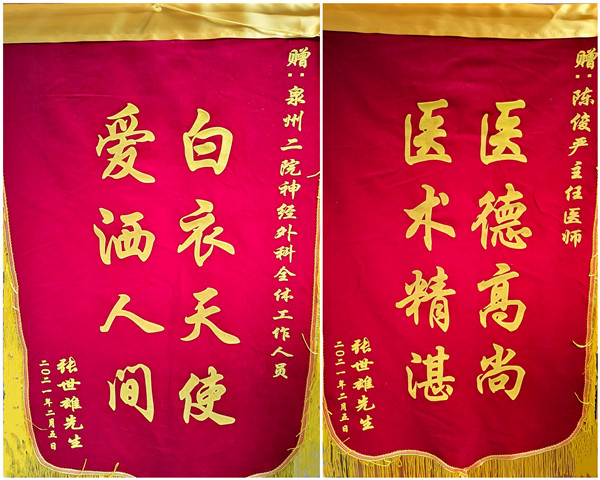 赠：泉州二院神经外科全体工作人员
白衣天使
爱洒人间
张世雄先生
二〇二一年二月五日
赠：陈俊严主任医师
医德高尚
医术精湛
张世雄先生
二〇二一年二月五日